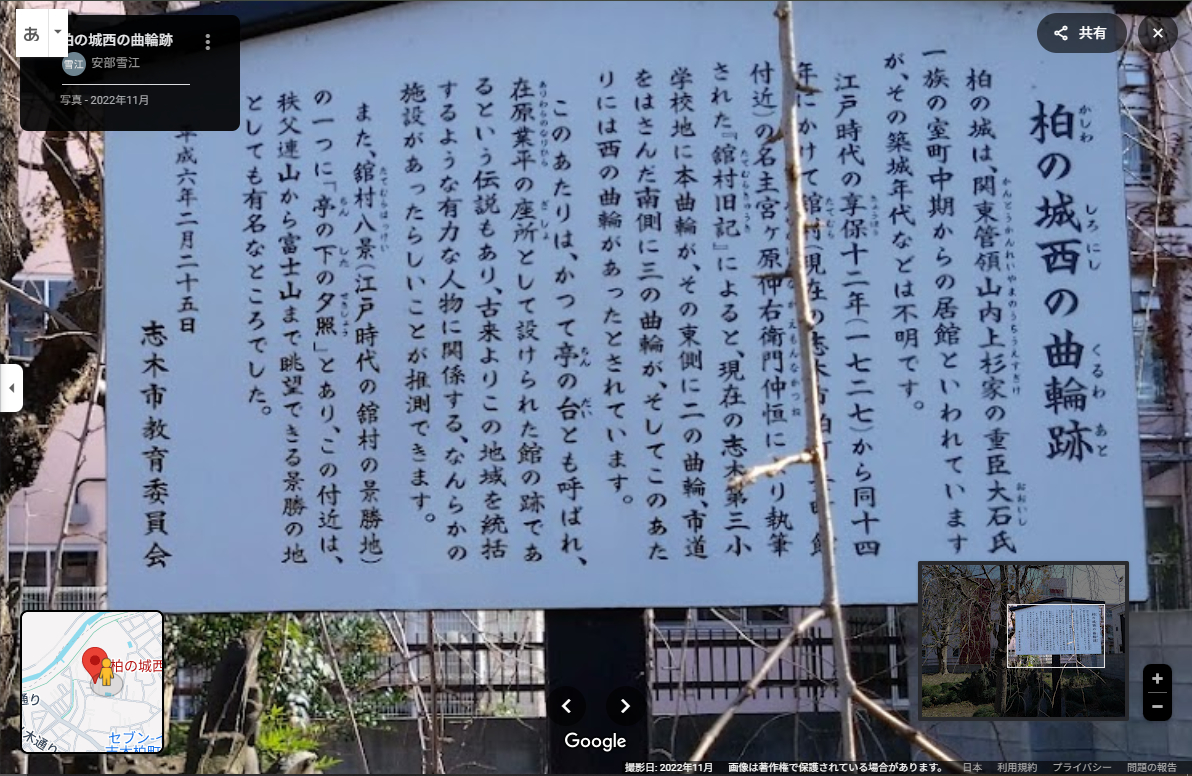 柏の城西の曲輪跡
かしわ
しろ にし
くるわ
あと
柏の城は、関東管領山内上杉家の重臣大石氏
かんとうかんれいやまのうちうえすぎけ
おおいし
一族の室町中期からの居館といわれています
が、その築城年代などは不明です。
江戸時代の享保十二年（一七二七）から同十四
きょうほう
年にかけて舘村（現在の志木市柏町
たてむら
付近）の名主宮ヶ原仲右衛門仲恒に
り執筆
えもんなかつね
された『舘村旧記』によると、現在の志木第三小
たてむらきゅうき
学校地に本曲輪が、その東側に二の曲輪、市道
をはさんだ南側に三の曲輪が、そしてこのあた
りには西の曲輪があったとされています。
このあたりは、かつて亭の台とも呼ばれ、
ちん
だい
在原業平の座所として設けられた館の跡であ
ありわらのなりひら
ざしょ
るという伝説もあり、古来よりこの地域を統括
するような有力な人物に関係する、なんらかの
施設があったらしいことが推測できます。
また、舘村八景（江戸時代の舘村の景勝地）
たてむらはっけい
の一つに「亭の下の夕照」とあり、この付近は、
ちん
した
せきしょう
秩父連山から富士山まで眺望できる景勝の地
としても有名なところでした。
平成六年二月二十五日
志木市教育委員会
あ
柏の城西の曲輪跡
雪江
安部雪江
写真 - 2022年11月
共有
柏の城西
通り
木通り
セブン-イ
志木柏町
Google
撮影日: 2022年11月
画像は著作権で保護されている場合があります。
日本
利用規約
プライバシー
問題の報告